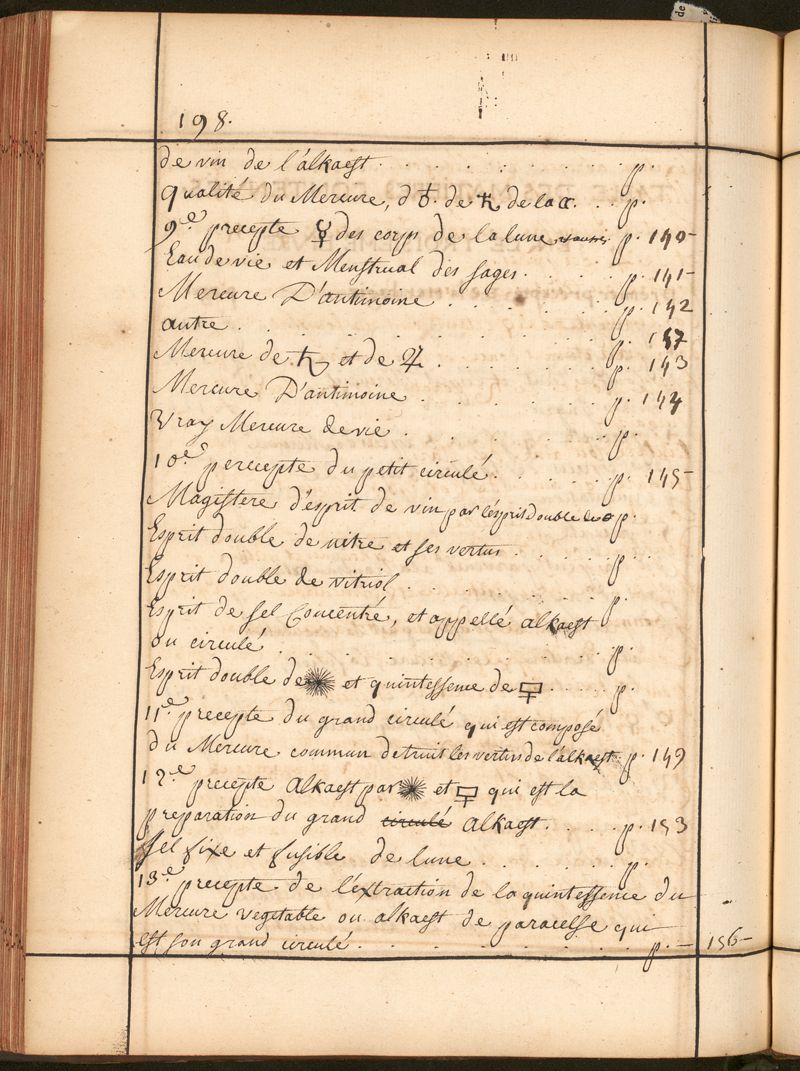 198.
de vin de l'alkaest . . . . . . . p.
qualité du Mercure, d ♁. de ♄ de la ☾. . . p.
9.e precepte ☿ des corps de la lune p. 140
Eau de vie et Menstrual des sages . . . . p. 141
Mercure D'antimoine . . . . . . . p. 142
autre . . . . . . . . . . . p. 147
Mercure de ♄ et de ♃ . . . . . . p. 143
Mercure D'antimoine . . . . . . . p. 144
Vray Mercure de vie . . . . . . . p.
10.e percepte du petit circulé . . . . p. 145
Magistere d'esprit de vin par l'esprit double de p.
Esprit double de nitre et ses vertus . . . p.
Esprit double de vitriol . . . . . . p.
Esprit de sel Concentré, et appellé alkaest
ou circulé . . . . . . . . . . p.
Esprit double de ✺ et quintessence de 🜿 . . . p.
11.e precepte du grand circulé qui est composé
du Mercure commun detruit les vertus de l'alkaest p. 149
12.e precepte Alkaest par ✺ et 🜿 qui est la
preparation du grand circulé Alkaest . . . . p. 153
Sel fixe et fusible de lune . . . . . . p.
13.e precepte de l'extraction de la quintessence du
Mercure vegetable ou alkaest de paracelse qui
est son grand circulé . . . . . . . . p. 156